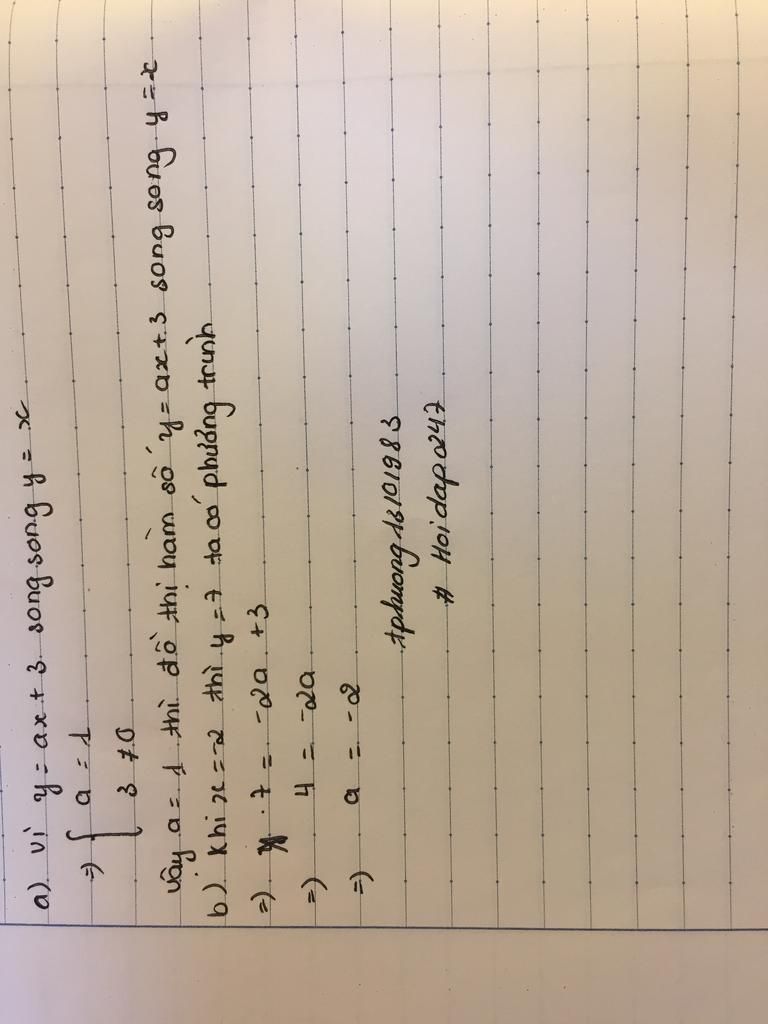 a) Vì y = ax + 3 song song y = x
=) { a = 1
3 ≠ 0
Vậy a = 1 thì đồ thị hàm số y = ax + 3 song song y = x
b) Khi x = -2 thì y = 7 ta có phương trình
=) 7 = -2a + 3
=) 4 = -2a
=) a = -2
tphuong16101983
# Hoidap247